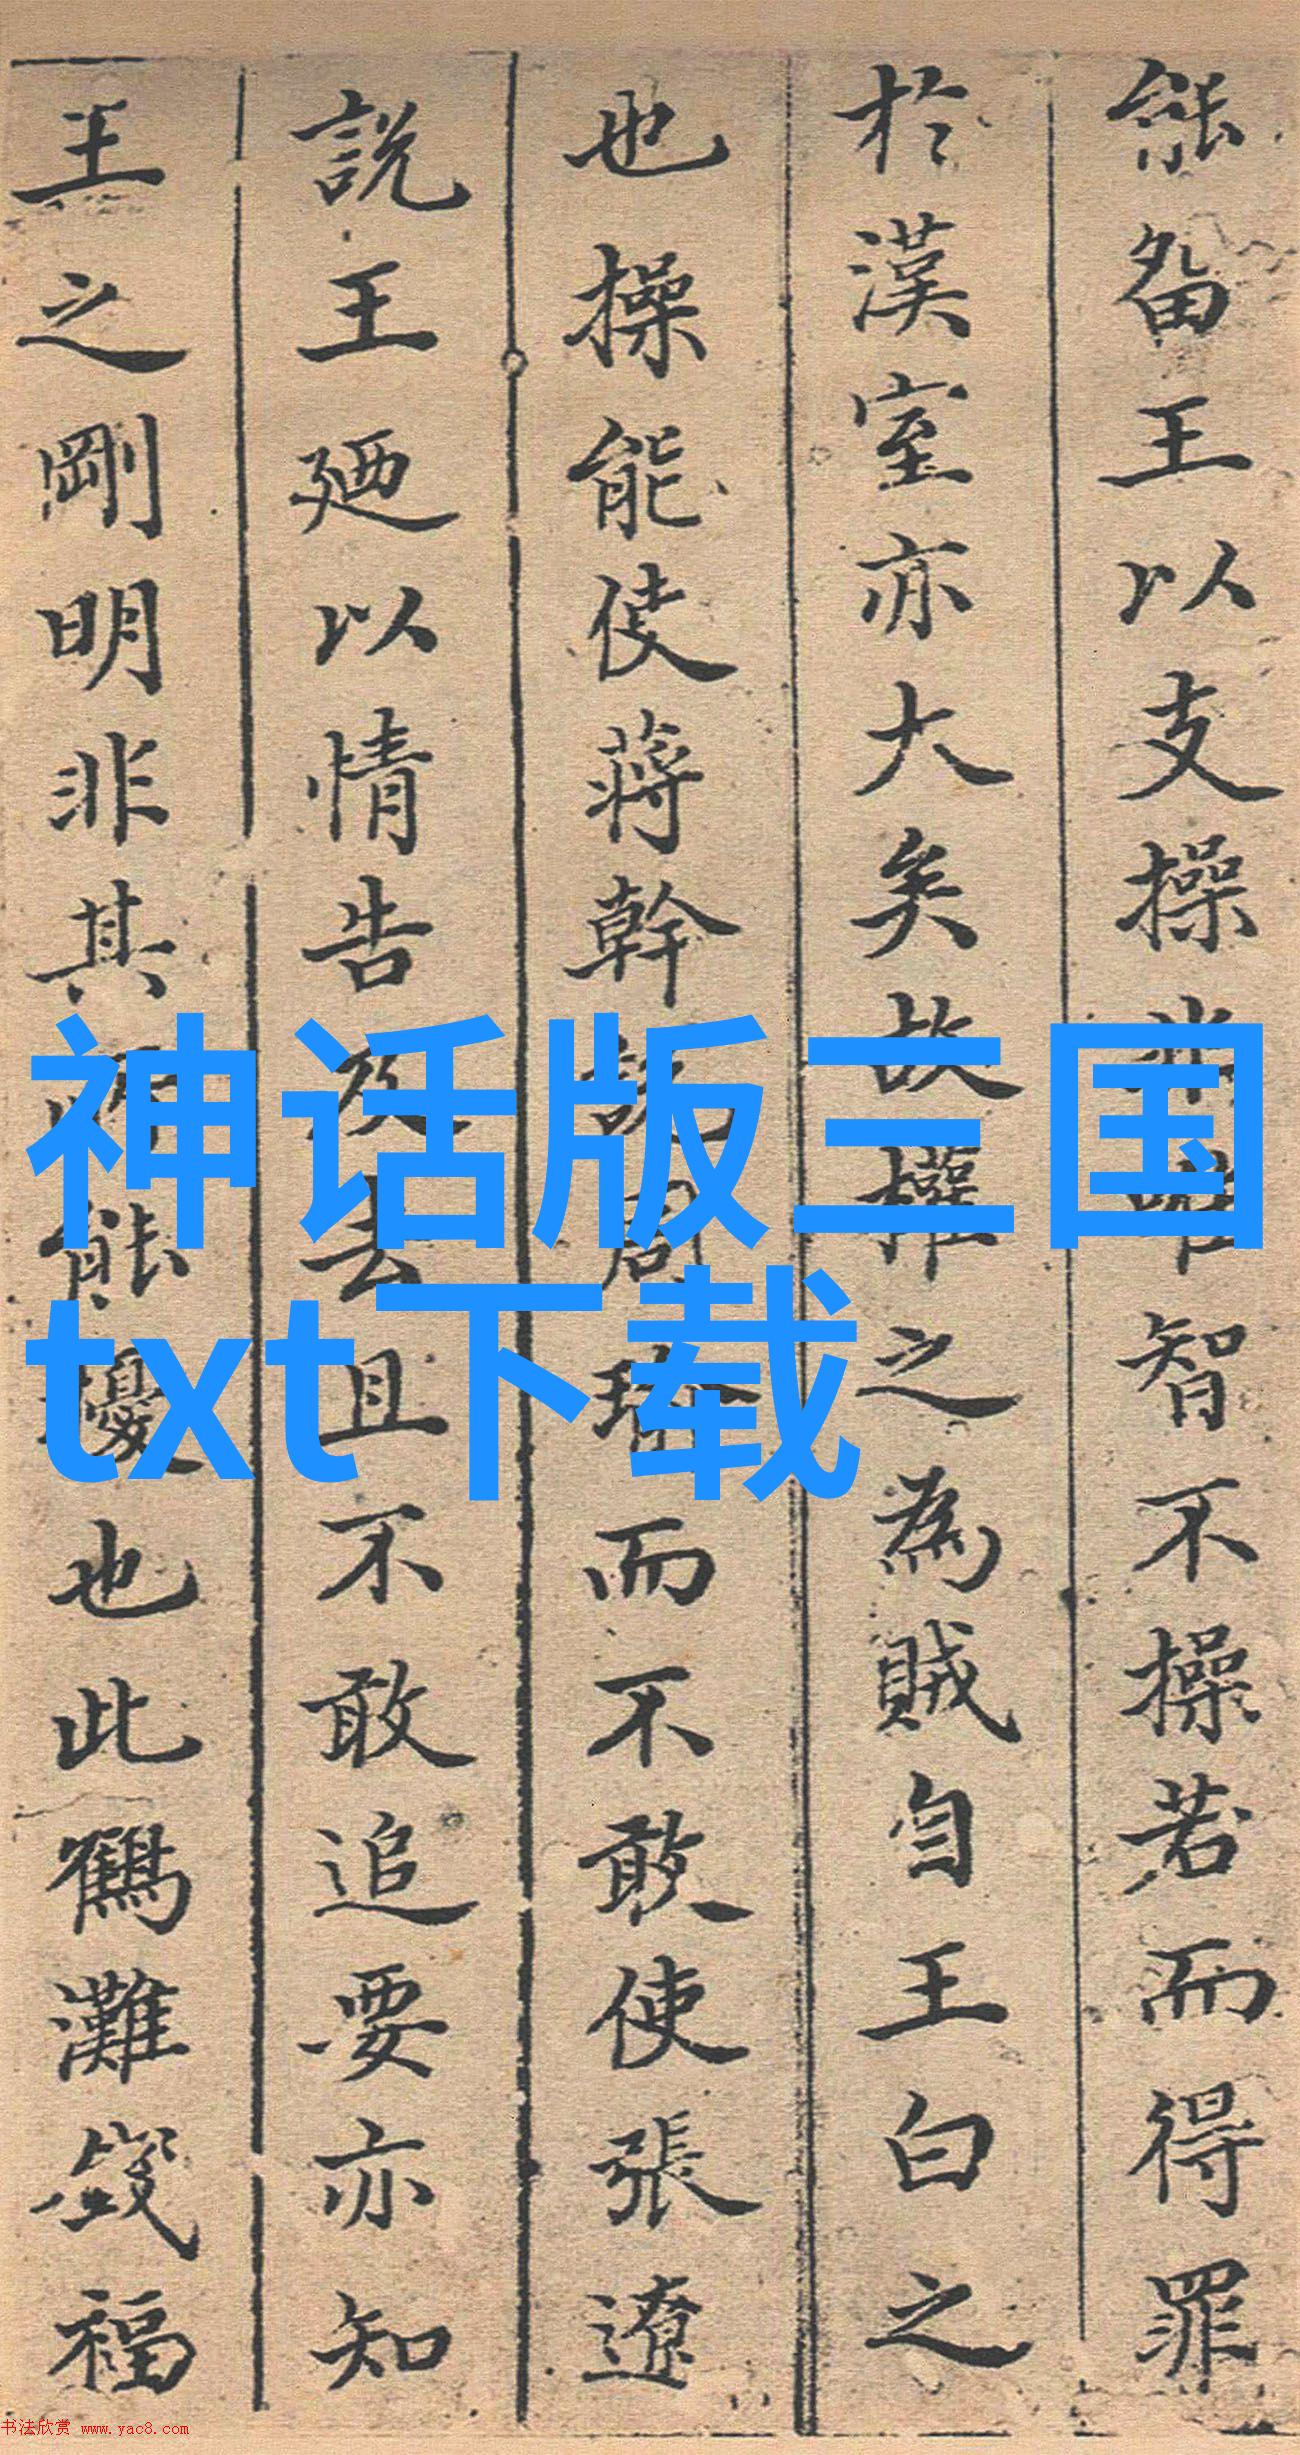 能畱王以支操非唯智不操若而得罪
於漢室亦大矣故操之為賊自王白之
也操能使蔣幹説周瑜而不敢使張遼
説王廼以情告及去且不敢追要亦知
王之剛明非其所能擾也此鶴灘錢福
神话版三国
txt下载
书法欣赏 www.yac8.com